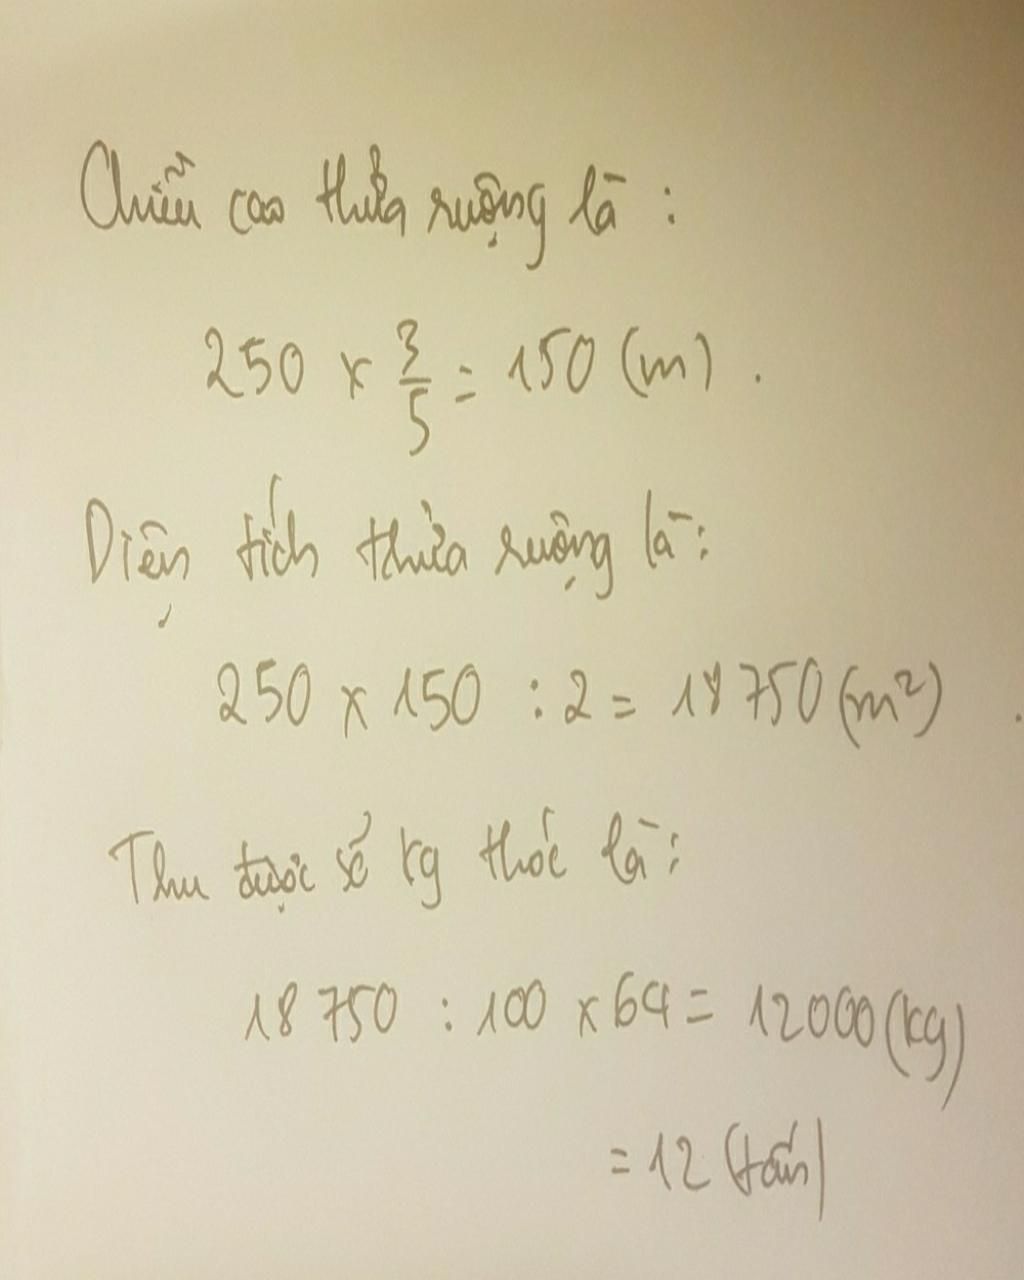 Chiều cao thửa ruộng là :
250 x 3/5 = 150 (m) .
Diện tích thửa ruộng là :
250 x 150 : 2 = 18 750 (m²) .
Thu được số kg thóc là :
18 750 : 100 x 64 = 12 000 (kg)
= 12 (tấn)